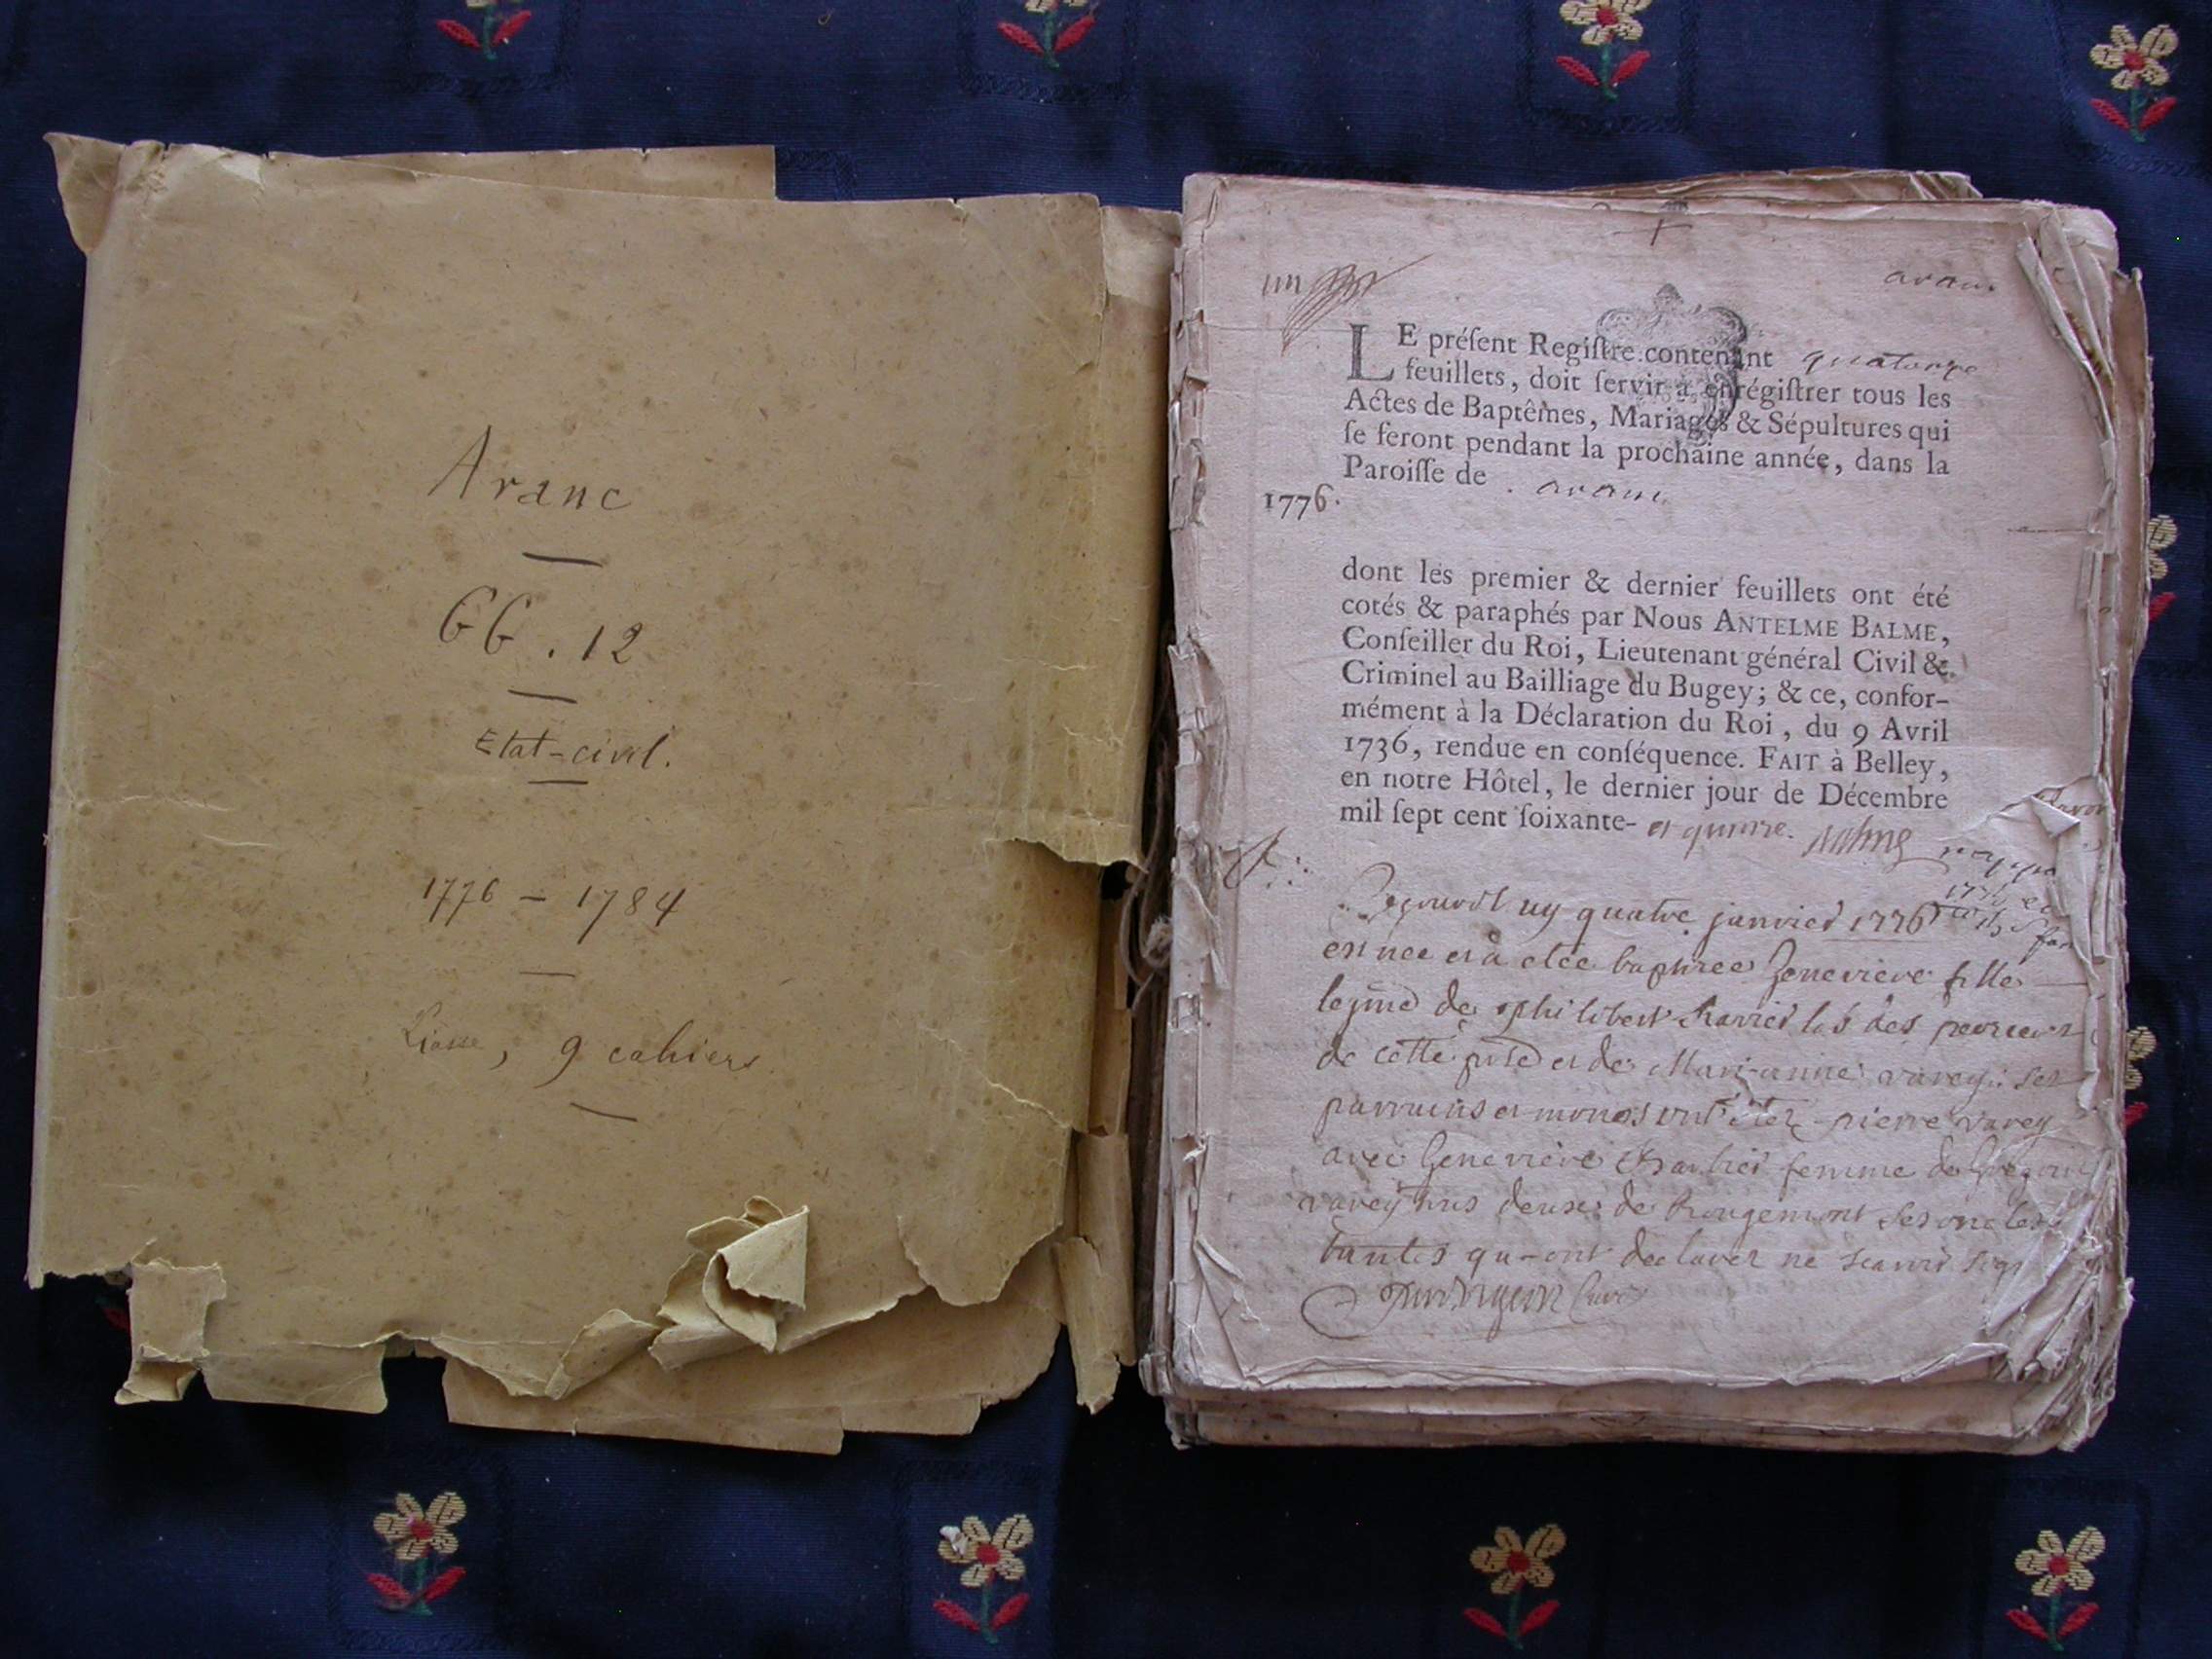 Aranc
GG. 12
Etat-civil.
1776 - 1784
Liasse, 9 cahiers
un
aranc
LE préſent Regiſtre contenant quatorze
feuillets, doit ſervir à enrégiſtrer tous les
Actes de Baptêmes, Mariages & Sépultures qui
ſe feront pendant la prochaine année, dans la
Paroiſſe de aranc
1776.
dont les premier & dernier feuillets ont été
cotés & paraphés par Nous ANTELME BALME,
Conſeiller du Roi, Lieutenant général Civil &
Criminel au Bailliage du Bugey; & ce, confor-
mément à la Déclaration du Roi, du 9 Avril
1736, rendue en conſéquence. FAIT à Belley,
en notre Hôtel, le dernier jour de Décembre
mil ſept cent ſoixante- et quinze. Balme
quatre janvier 1776
est nee et a etée baptisee Genevieve fille
de philibert des
de cette et de Marianne varey: ses
parrains et ont pierre varey
avec Genevieve femme de
varey tous deux de Rougemont ses oncles
tantes qu-ont declarer ne
curé